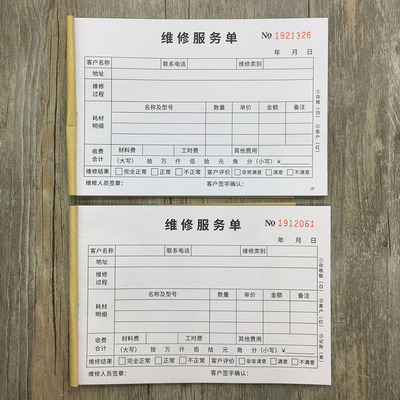 维修服务单
No 1921326
年 月 日
客户名称 联系电话 维修类别
地址
维修过程
名称及型号 数量 单价 金额 备注
耗材明细
收费合计 材料费 工时费 其他费用
(大写) 拾 万 仟 佰 拾 元 角 分 (小写) ¥
维修结果 □完全正常 □正常 □不正常 客户评价 □非常满意 □满意 □不满意
维修人员签章: 客户签字确认:
①存根(白) ②客户(红)
维修服务单
No 1912061
年 月 日
客户名称 联系电话 维修类别
地址
维修过程
名称及型号 数量 单价 金额 备注
耗材明细
收费合计 材料费 工时费 其他费用
(大写) 拾 万 仟 佰 拾 元 角 分 (小写) ¥
维修结果 □完全正常 □正常 □不正常 客户评价 □非常满意 □满意 □不满意
维修人员签章: 客户签字确认:
①存根联(白) ②客户(红) ③记账(黄)